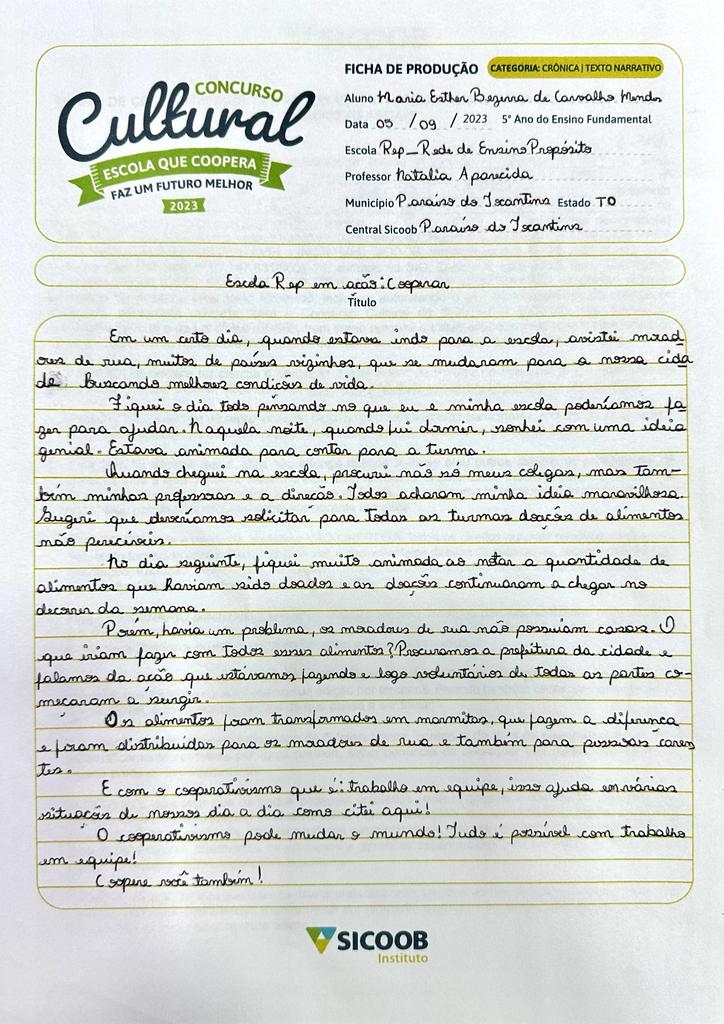 CONCURSO
Cultural
ESCOLA QUE COOPERA
FAZ UM FUTURO MELHOR
2023
FICHA DE PRODUÇÃO CATEGORIA: CRÔNICA | TEXTO NARRATIVO
Aluno Maria Esther Bezerra de Carvalho Mendes
Data 05 / 09 / 2023 5º Ano do Ensino Fundamental
Escola Rep_Rede de Ensino Propósito
Professor Natalia Aparecida
Município Paraíso do Tocantins Estado TO
Central Sicoob Paraíso do Tocantins
Escola Rep em ação: Cooperar
Título
Em um certo dia, quando estava indo para a escola, avistei morad
ores de rua, muitos de países vizinhos, que se mudaram para a nossa cida
de buscando melhores condições de vida.
Fiquei o dia todo pensando no que eu e minha escola poderíamos fa
zer para ajudar. Naquela noite, quando fui dormir, sonhei com uma ideia
genial. Estava animada para contar para a turma.
Quando cheguei na escola, procurei não só meus colegas, mas tam-
bém minhas professoras e a direção. Todos acharam minha ideia maravilhosa.
Sugeri que deveríamos solicitar para todas as turmas doações de alimentos
não perecíveis.
No dia seguinte, fiquei muito animada ao notar a quantidade de
alimentos que haviam sido doados e as doações continuaram a chegar no
decorrer da semana.
Porém, havia um problema, os moradores de rua não possuíam casas. O
que iriam fazer com todos esses alimentos? Procuramos a prefeitura da cidade e
falamos da ação que estávamos fazendo e logo voluntários de todas as partes co-
meçaram a surgir.
Os alimentos foram transformados em marmitas, que fazem a diferença
e foram distribuídas para os moradores de rua e também para pessoas caren
tes.
E com o cooperativismo que é: trabalho em equipe, isso ajuda em várias
situações de nosso dia a dia como citei aqui!
O cooperativismo pode mudar o mundo! Tudo é possível com trabalho
em equipe!
Coopere você também!
SICOOB
Instituto